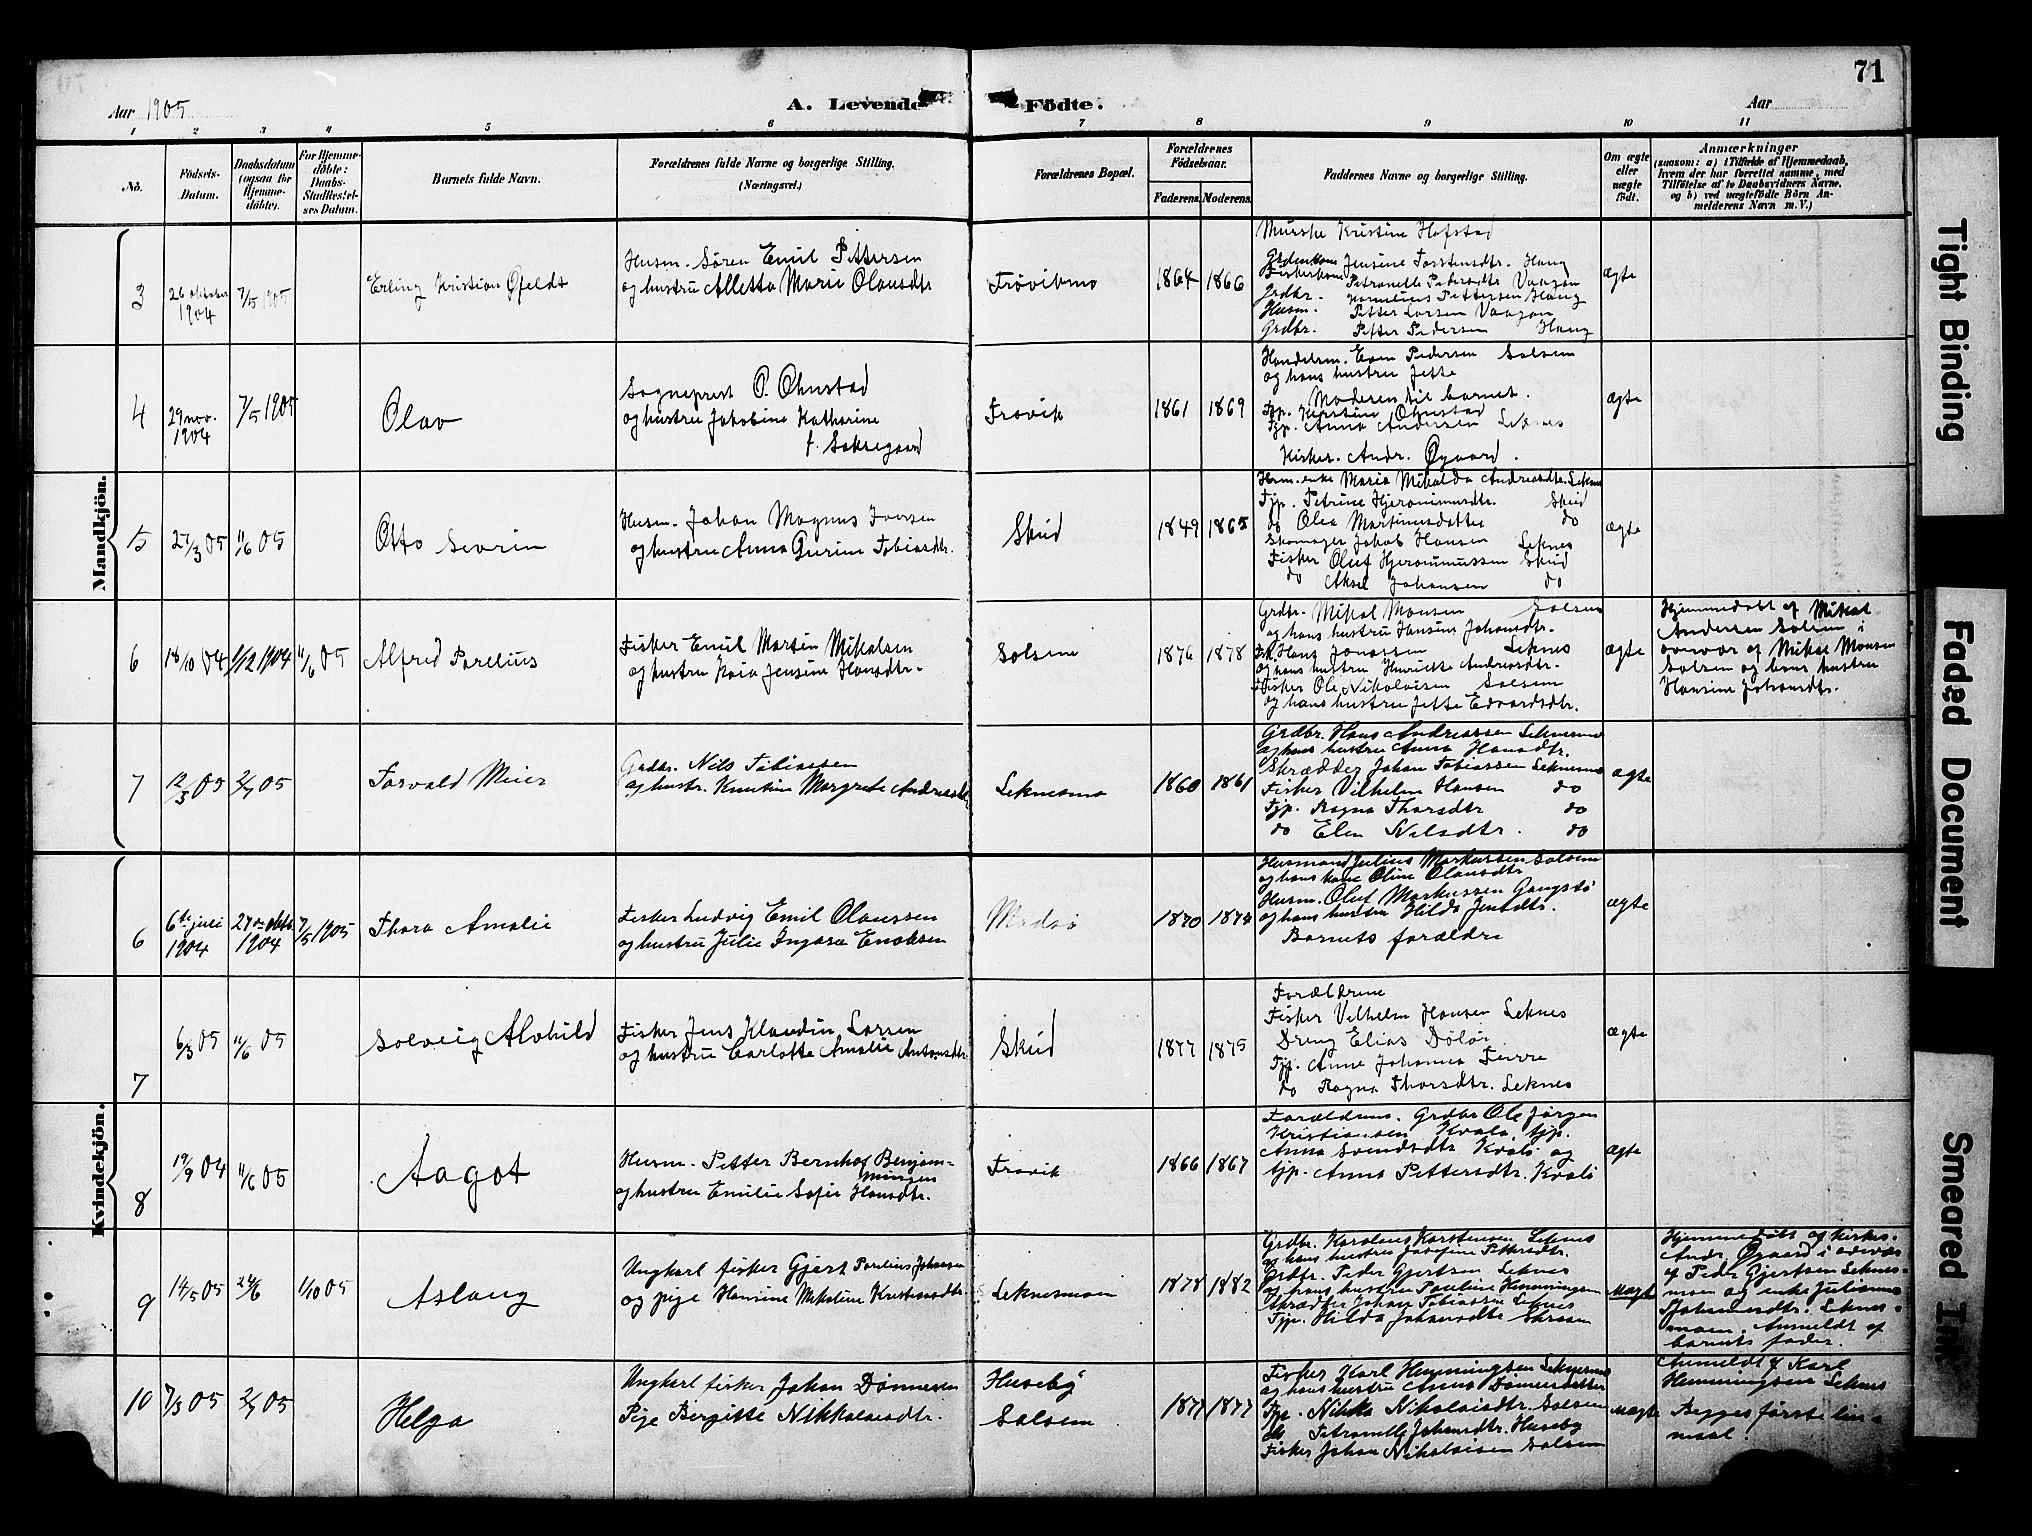 71
Aar 1905
A. Levende Födte.
Aar
1 2 3 4 5 6 7 8 9 10 11
No.
Födsels-Datum.
Daabsdatum (ogsaa for Hjemme-döbte).
For Hjemme-döbte: Daabs-Stadfæstel-ses Datum.
Barnets fulde Navn.
Forældrenes fulde Navne og borgerlige Stilling.
(Næringsvei.)
Forældrenes Bopæl.
Forældrenes Födselsaar.
Faderens. Moderens.
Faddernes Navne og borgerlige Stilling.
Om ægte eller uægte födt.
Anmærkninger
(saasom: a) i Tilfælde af Hjemmedaab,
hvem der har forrettet samme, med
Tilföielse af to Daabsvidners Navne,
og b) ved uægtefödte Börn An-
melderens Navn m. V.)
Mandkjön.
3
26 oktober 1904
7/5 1905
Erling Kristian Øfeldt
Husm. Søren Emil Pettersen
og hustru Alletta Marie Olausdtr
Frøvikmo
1864 1866
Kristine Hofstad
Grdmkone Jensine Torstensdtr. Haug
Fiskerkone Petronelle Petersdtr Vaagan
Grdbr. Kornelius Pettersen Haug
Husm. Petter Larsen Vaagan
Grdbr. Petter Pedersen Haug
ægte
4
29 nov. 1904
7/5 1905
Olav
Sogneprest O. Øhnstad
og hustru Jakobine Katharine
f. Saksegaard
Frøvik
1861 1869
Handelsm. Even Pedersen Solsem
og hans hustru Jette
Moderen til barnet.
Pp. Kirstine Øhnstad
Tjp. Anna Andersen Leknes
Kirker. Andr. Øgaard.
ægte
5
27/3 05
11/6 05
Otto Sevrin
Husm. Johan Magnus Iversen
og hustru Anna Gurine Tobiasdtr.
Skeid
1849 1865
Husm. enke Maria Mikalda Andreasdtr. Leknes
Tjp. Petrine Hjeronimusdtr. Skeid
do Olea Martinusdatter do
Skomager Jakob Hansen Leknes
Fisker Oluf Hjeronimussen Skeid
do Aksel Johansen do
ægte
6
18/10 04
1/12 1904
11/6 05
Alfred Parelius
Fisker Emil Martin Mikalsen
og hustru Kaia Jensine Hansdtr.
Solsem
1876 1878
Grdbr. Mikal Monsen Solsem
og hans hustru Hansine Johansdtr.
Fisk. Hans Jonassen Leknes
og hans hustru Henriette Andreasdtr.
Fisker Ole Nikolaisen Solsem
og hans hustru Jette Edvardsdtr.
ægte
Hjemmedøbt af Mikal
Andersen Solsem i
overvær af Mikal Monsen
Solsem og hans hustru
Hansine Johansdtr.
7
12/3 05
2/7 05
Torvald Meier
Grdbr. Nils Tobiassen
og hustr. Kirstine Margrete Andreasdtr
Leknesmo
1860 1861
Grdbr. Hans Andreassen Leknesmo
og hans hustru Anna Hansdtr.
Skrædder Johan Tobiassen Leknesmo
Fisker Vilhelm Hansen do
Tjp. Ragna Thorsdtr do
do Elen Nilsdtr. do
ægte
Kvindekjön.
6
6te juli 1904
27de okto. 1904
7/5 1905
Thora Amalie
Fisker Ludvig Emil Olaussen
og hustru Julie Ingara Enoksen
Madsø
1870 1874
Husmand Julius Markussen Solsem
og hans kone Oline Olausdtr
Husm. Oluf Markussen Gangstø
og hans hustru Hilda Jensdtr.
Barnets forældre
ægte
7
6/3 05
11/6 05
Solveig Alvhild
Fisker Jens Klaudin Larsen
og hustru Carlotte Amalie Antonsdtr.
Skeid
1877 1875
Forældrene
Fisker Vilhelm Hansen Leknes
Dreng Elias Døløi
Tjp. Anne Johanna Terra
do Ragna Thorsdtr. Leknes
ægte
8
19/9 04
11/6 05
Aagot
Husm. Petter Bernhof Benjam-
minsen
og hustru Emilie Sofie Hansdtr.
Frøvik
1866 1867
Forældrene. Grdbr Ole Jørgen
Kristiansen Kvalø. tjp.
Anna Svendsdtr Kvalø og
tjp. Anna Pettersdtr. Kvalø
ægte
9
14/5 05
24/6
1/10 05
Aslaug
Ungkarl fisker Gjert Parelius Johansen
og pige Hansine Mikaline Kristiansdtr
Leknesmoen
1878 1882
Grdbr. Karolius Karstensen Leknes
og hans hustru Josefine Pettersdtr.
Grdbr. Peder Gjertsen Leknes
og hans hustru Pauline Hemmingsen
Skrædder Johan Tobiassen Leknes
Tjp. Hilda Johansdtr
uægte
Hjemmedøbt af kirkes.
Andr. Øgaard i overvær
af Peder Gjertsen Leknes-
moen og enke Julianna
Johansdtr. Leknes-
moen. Anmeldt af
barnets fader.
10
7/3 05
2/7 05
Helga
Ungkarl fisker Johan Dønnesen
Pige Bergitte Nikkolaisdtr.
Huseby
Solsem
1877 1877
Fisker Karl Hemmingsen Leknesmo
og hans hustru Anna Dønnesdatter
Tjp. Nikka Nikolaisdtr. Solsem
do Petronelle Johansdtr. Huseby
Fisker Johan Nikolaisen Solsem
uægte
Anmeldt af Karl
Hemmingsen Leknes
Begges første leier-
maal
Tight Binding
Faded Document
Smeared Ink